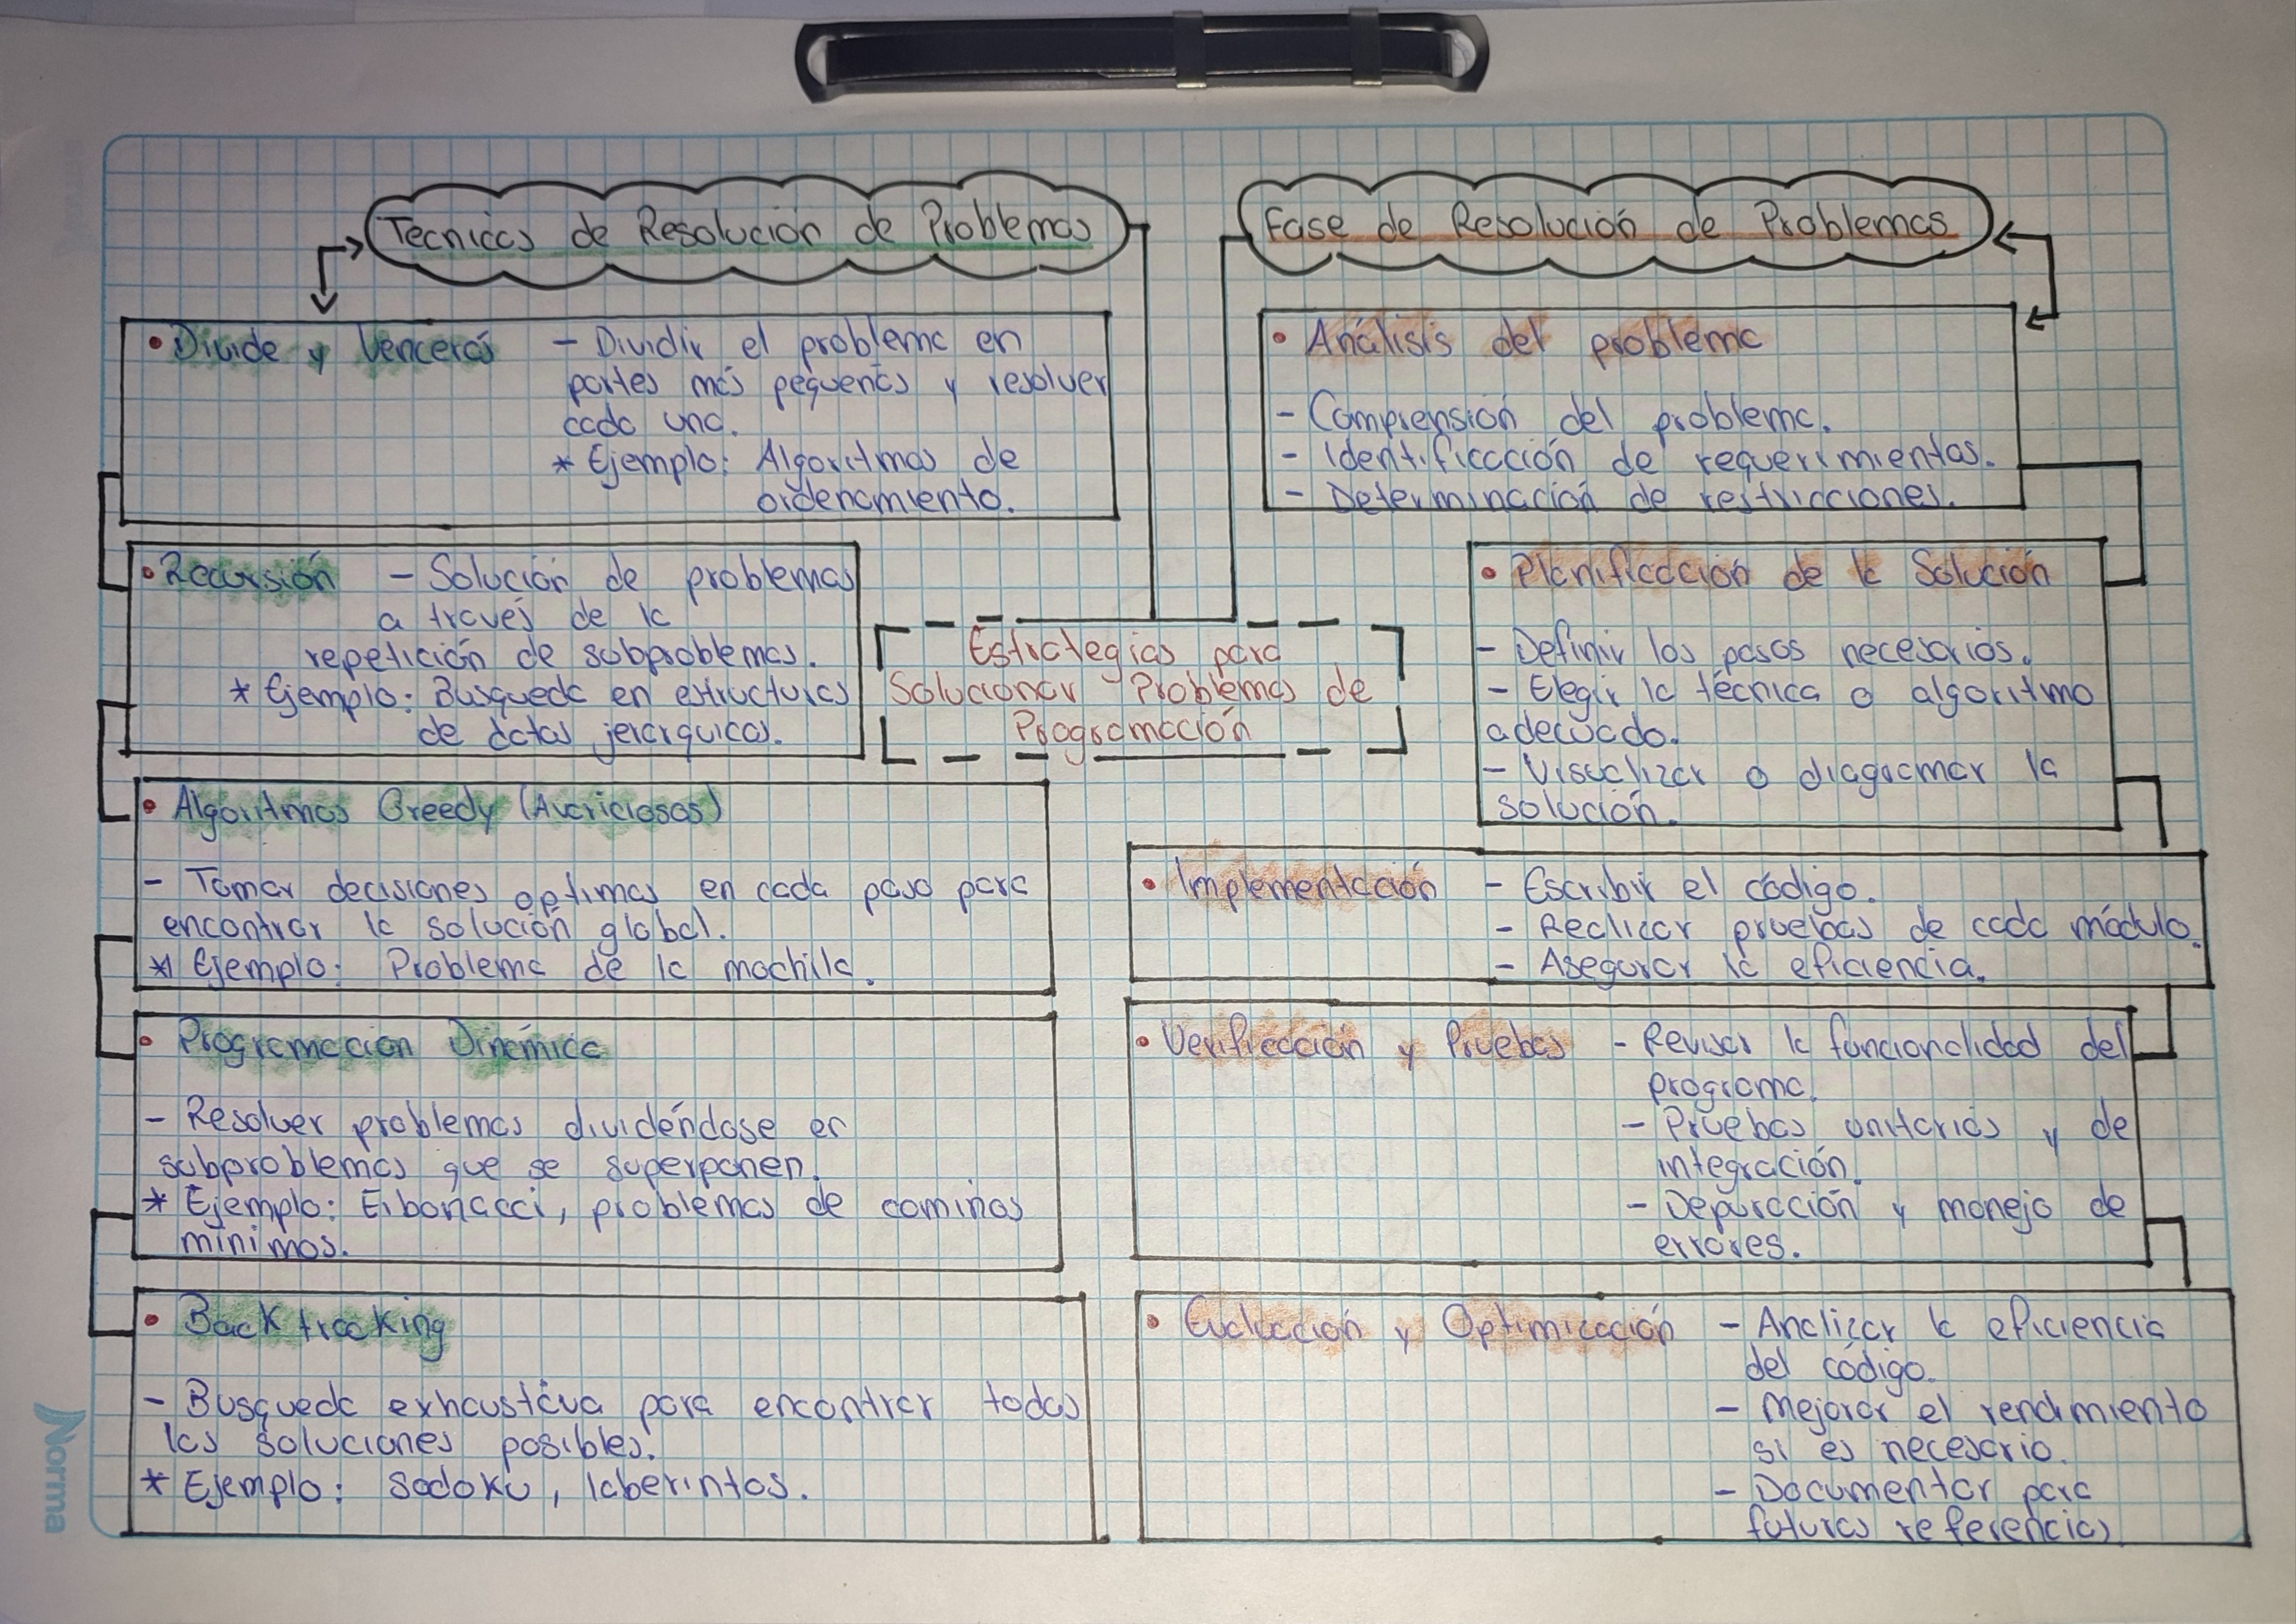 Tecnicas de Resolución de Problemas
• Divide y Vencerás - Dividir el problema en
partes más pequeñas y resolver
cada una.
* Ejemplo: Algoritmos de
ordenamiento.
• Recursión - Solución de problemas
a través de la
repetición de subproblemas.
* Ejemplo: Busqueda en estructuras
de datos jerarquicas.
• Algoritmos Greedy (Avariciosos)
- Tomar decisiones optimas en cada paso para
encontrar la solución global.
* Ejemplo: Problema de la mochila.
• Programacion Dinámica
- Resolver problemas dividéndose en
subproblemas que se superponen.
* Ejemplo: Fibonacci, problemas de caminos
minimos.
• Backtracking
- Busqueda exhaustiva para encontrar todas
las soluciones posibles.
* Ejemplo: Sodoku, laberintos.
Estrategias para
Solucionar Problemas de
Programación
Fase de Resolución de Problemas
• Análisis del problema
- Comprensión del problema.
- Identificación de requerimientos.
- Determinación de restricciones.
• Planificación de la Solución
- Definir los pasos necesarios.
- Elegir la técnica o algoritmo
adecuado.
- Visualizar o diagramar la
solución.
• Implementación - Escribir el código.
- Realizar pruebas de cada módulo.
- Asegurar la eficiencia.
• Verificación y Pruebas - Revisar la funcionalidad del
programa.
- Pruebas unitarias y de
integración.
- Depuración y manejo de
errores.
• Evaluación y Optimización - Analizar la eficiencia
del código.
- Mejorar el rendimiento
si es necesario.
- Documentar para
futuras referencias
Norma